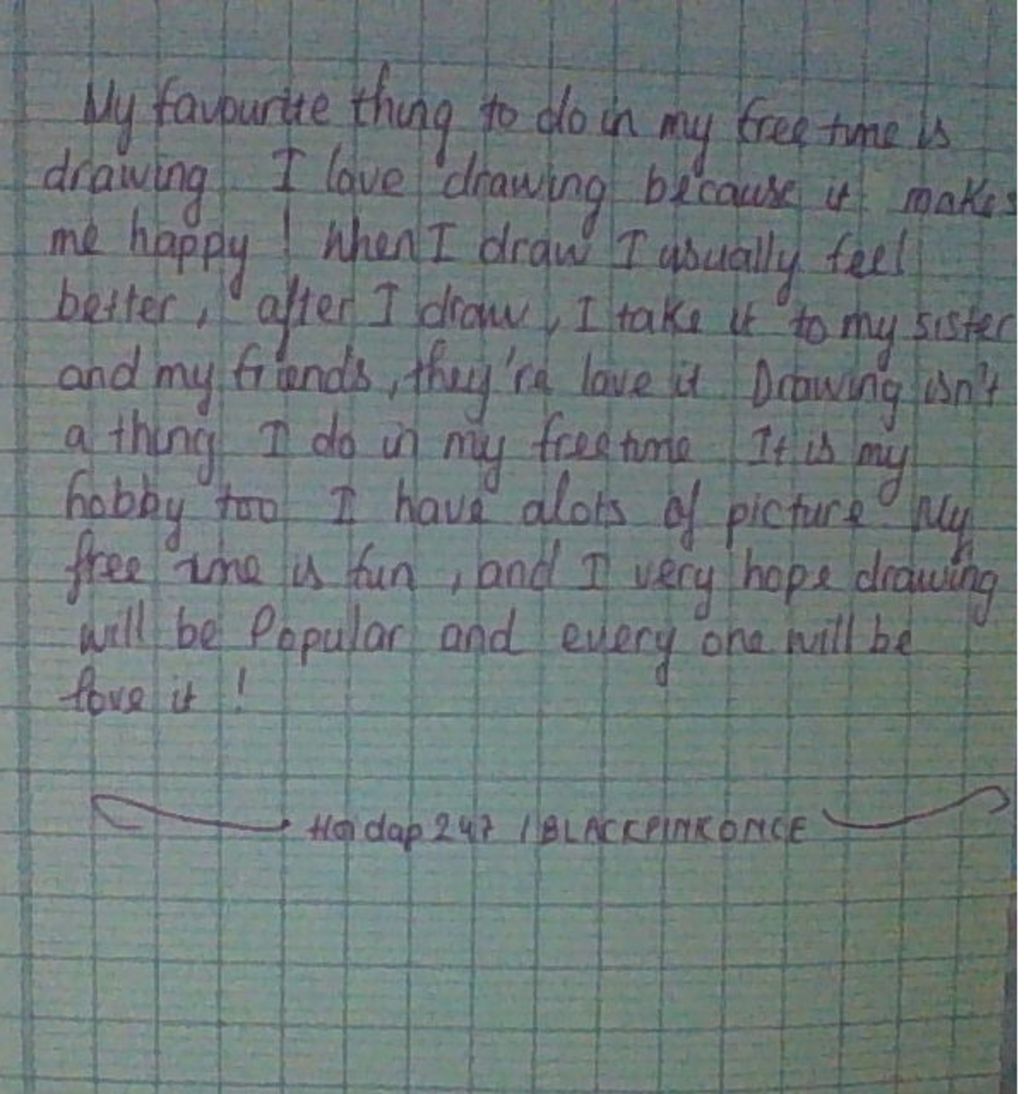 My favourite thing to do in my free time is
drawing I love drawing because it makes
me happy! When I draw I usually feel
better, after I draw, I take it to my sister
and my friends, they're love it Drawing isn't
a thing I do in my free time It is my
hobby too I have alots of picture My
free time is fun, and I very hope drawing
will be Popular and every one will be
love it!
Hoidap247 / BLACKPINKONCE